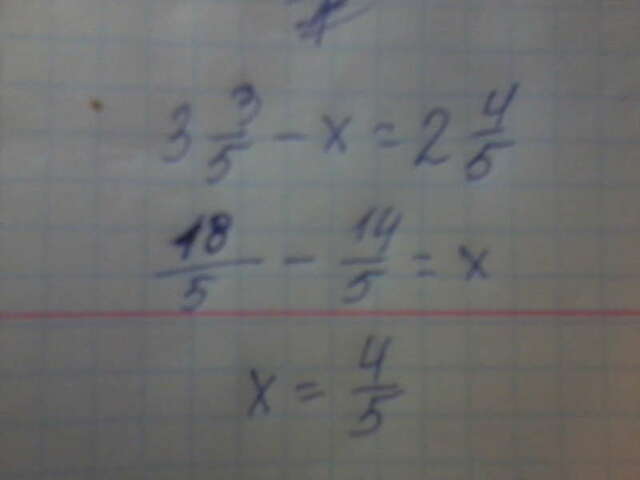 3 3/5 - x = 2 4/5
18/5 - 14/5 = x
x = 4/5